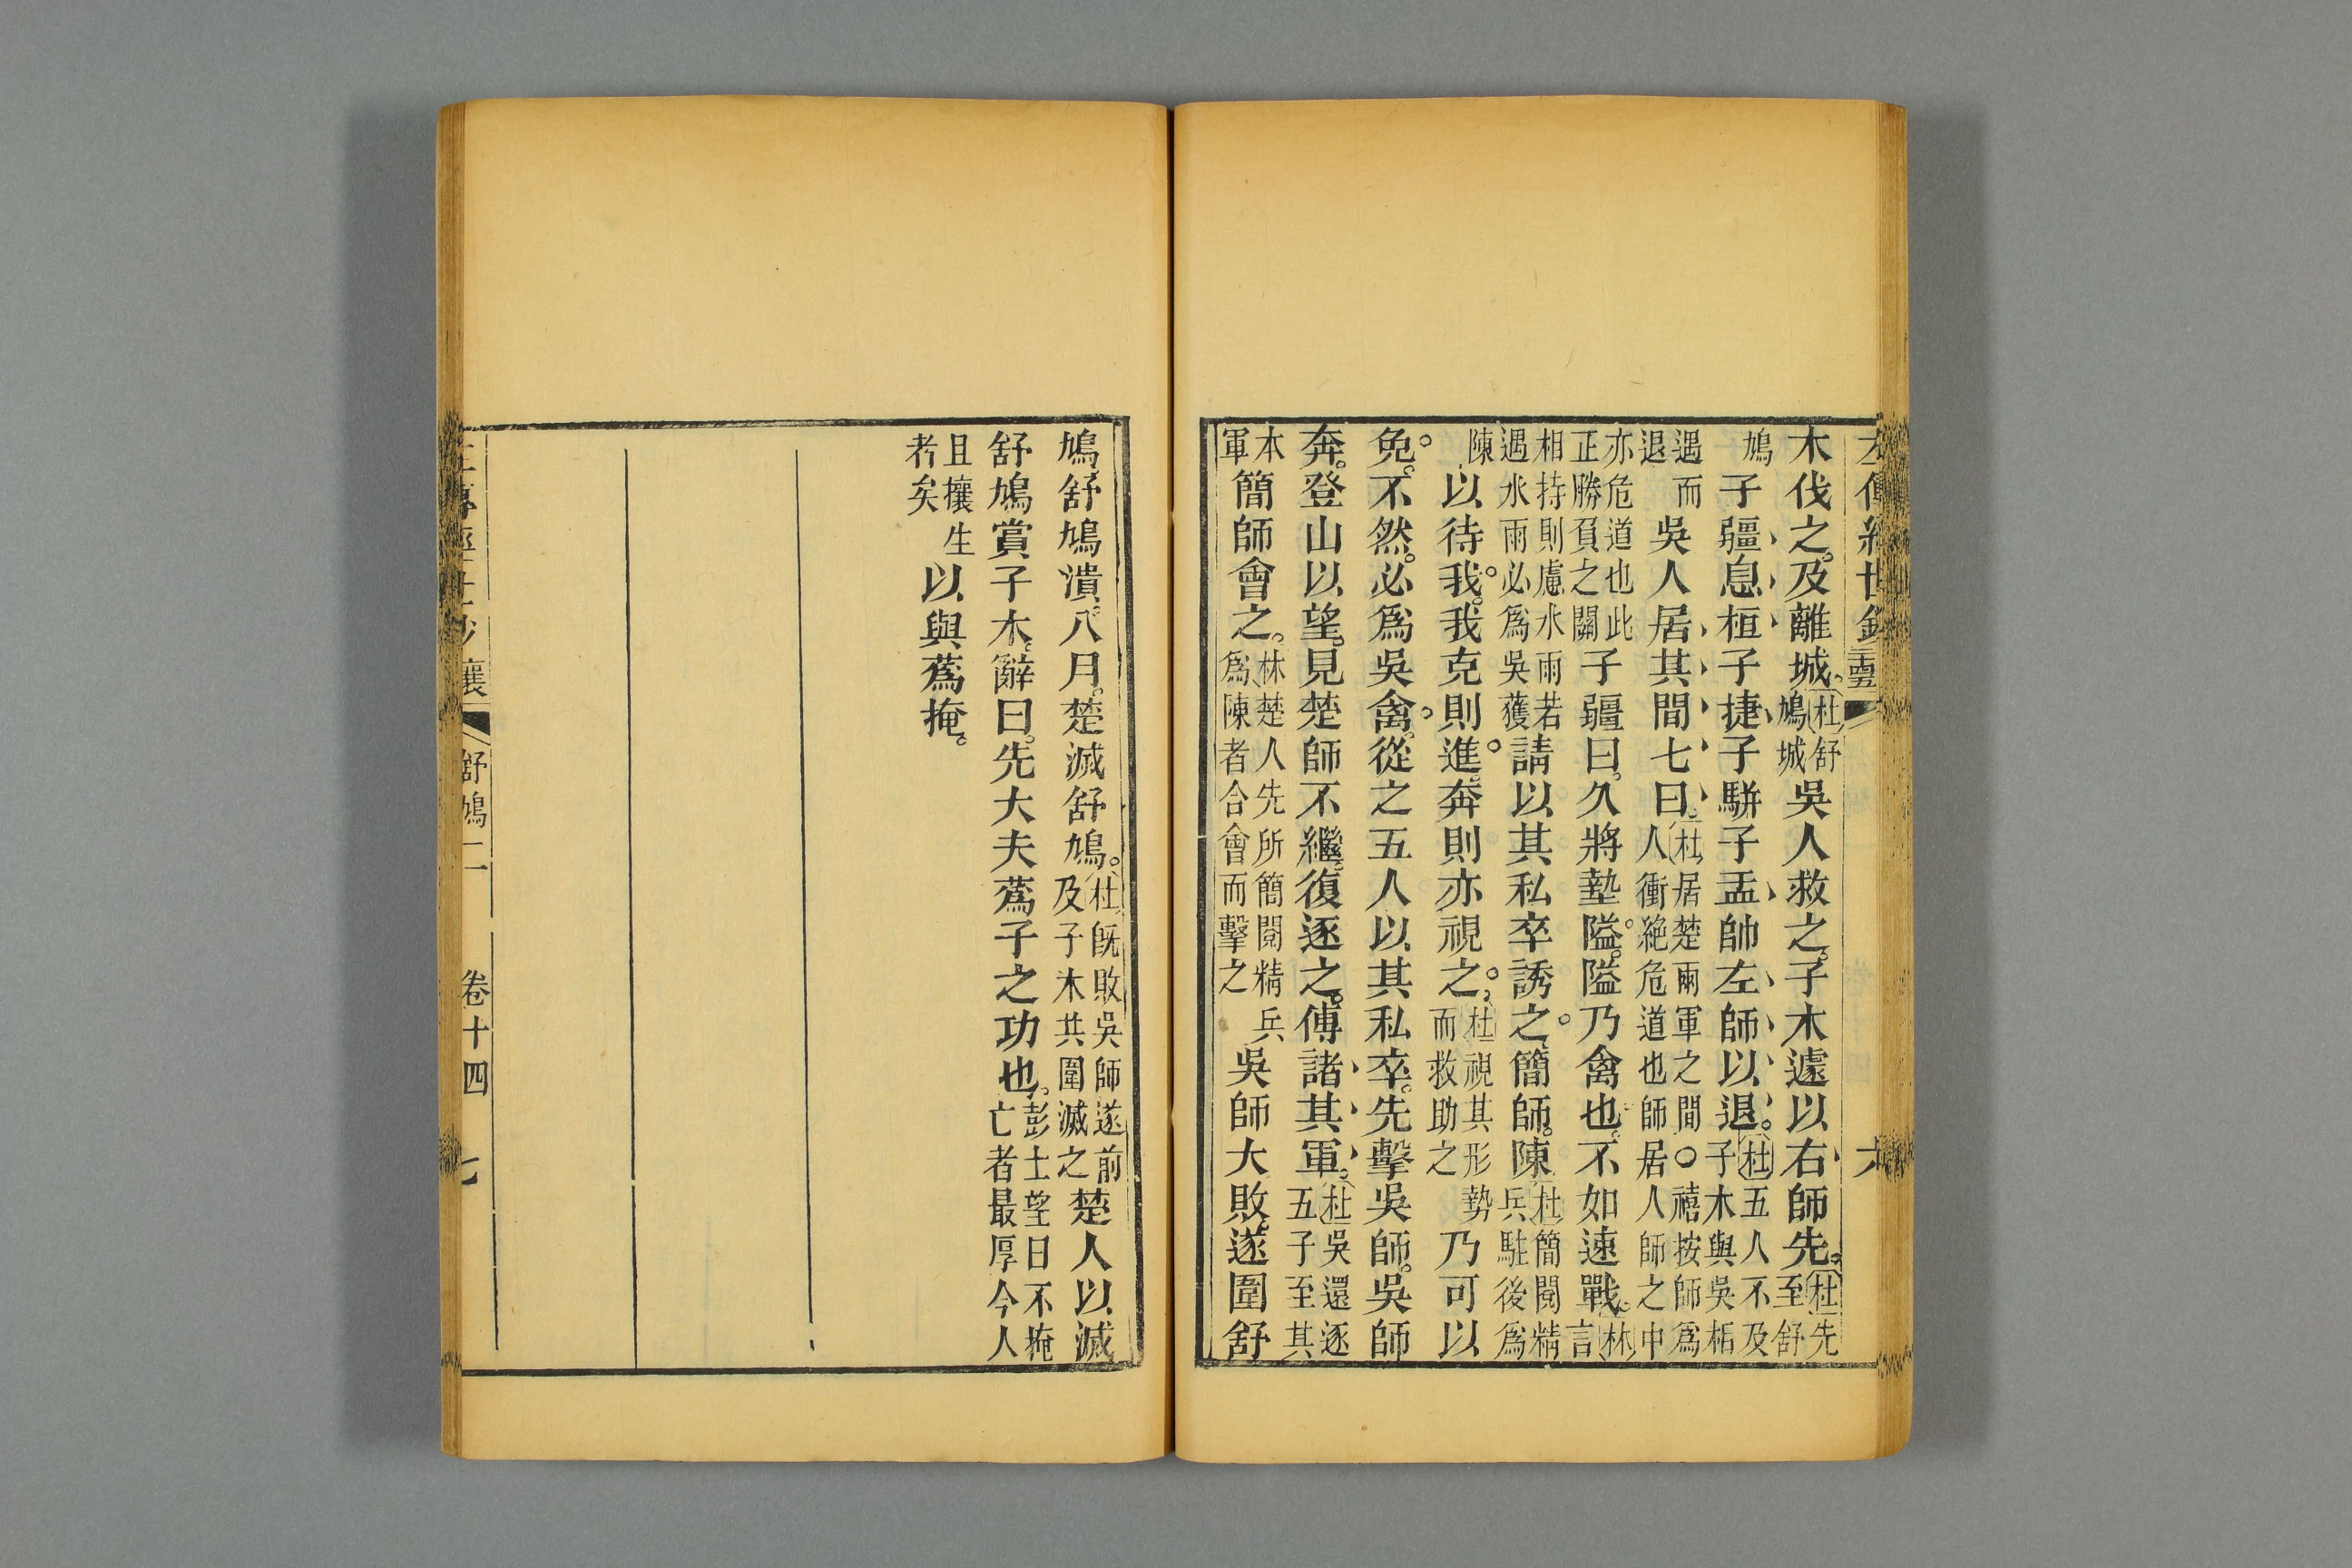 左傳經世鈔
木伐之。及離城。杜舒鳩城吳人救之。子木遽以右師先。杜先至舒
鳩子疆息桓子捷子駢子盂帥左師以退。杜五人不及子木與吳栢
遇而退吳人居其間七日。杜居楚兩軍之間〇禧按師爲人衝絶危道也師居人師之中
亦危道也此正勝負之關子疆曰。久將墊隘。隘乃禽也。不如速戰。林言
相持則慮水雨若遇水雨必爲吳獲請以其私卒誘之。簡師。陳杜簡閱精兵駐後爲
陳以待我。我克則進。奔則亦視之。杜視其形勢而救助之乃可以
免。不然。必爲吳禽。從之五人以其私卒。先擊吳師。吳師
奔。登山以望。見楚師不繼。復逐之。傅諸其軍。杜吳還逐五子至其
本軍簡師會之。林楚人先所簡閱精兵爲陳者合會而擊之吳師大敗。遂圍舒
鳩。舒鳩潰。八月。楚滅舒鳩。杜旣敗吳師遂前及子木共圍滅之楚人以滅
舒鳩賞子木。辭曰。先大夫蔿子之功也。彭士望曰不掩亡者最厚今人
且攘生者矣以與蔿掩。
左傳經世鈔 襄 舒鳩二 卷十四 七